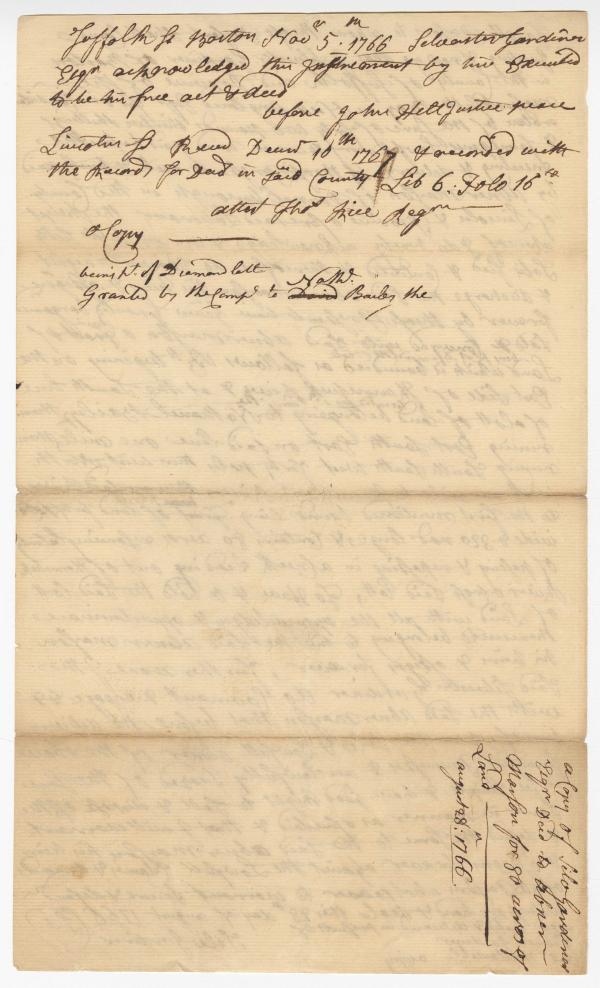 Suffolk Ss Boston Novr 5th 1766 Silvester Gardiner
Esqr acknowledged this Instrument by him Executed
to be his free act & deed
before John Hill Justice peace
Lincoln Ss Recd Decmr 10th 1767 & recorded with
the Records for Deeds in said County Lib 6: Folo 16
attest Thos Rice Regr
a Copy
of Diamond lott
Granted by the Compy to David Nathl Bailey the
a Copy of Silvr Gardiner
Esqr Deed to Abner
Marson for 80 acres of
Land
august 28: 1766